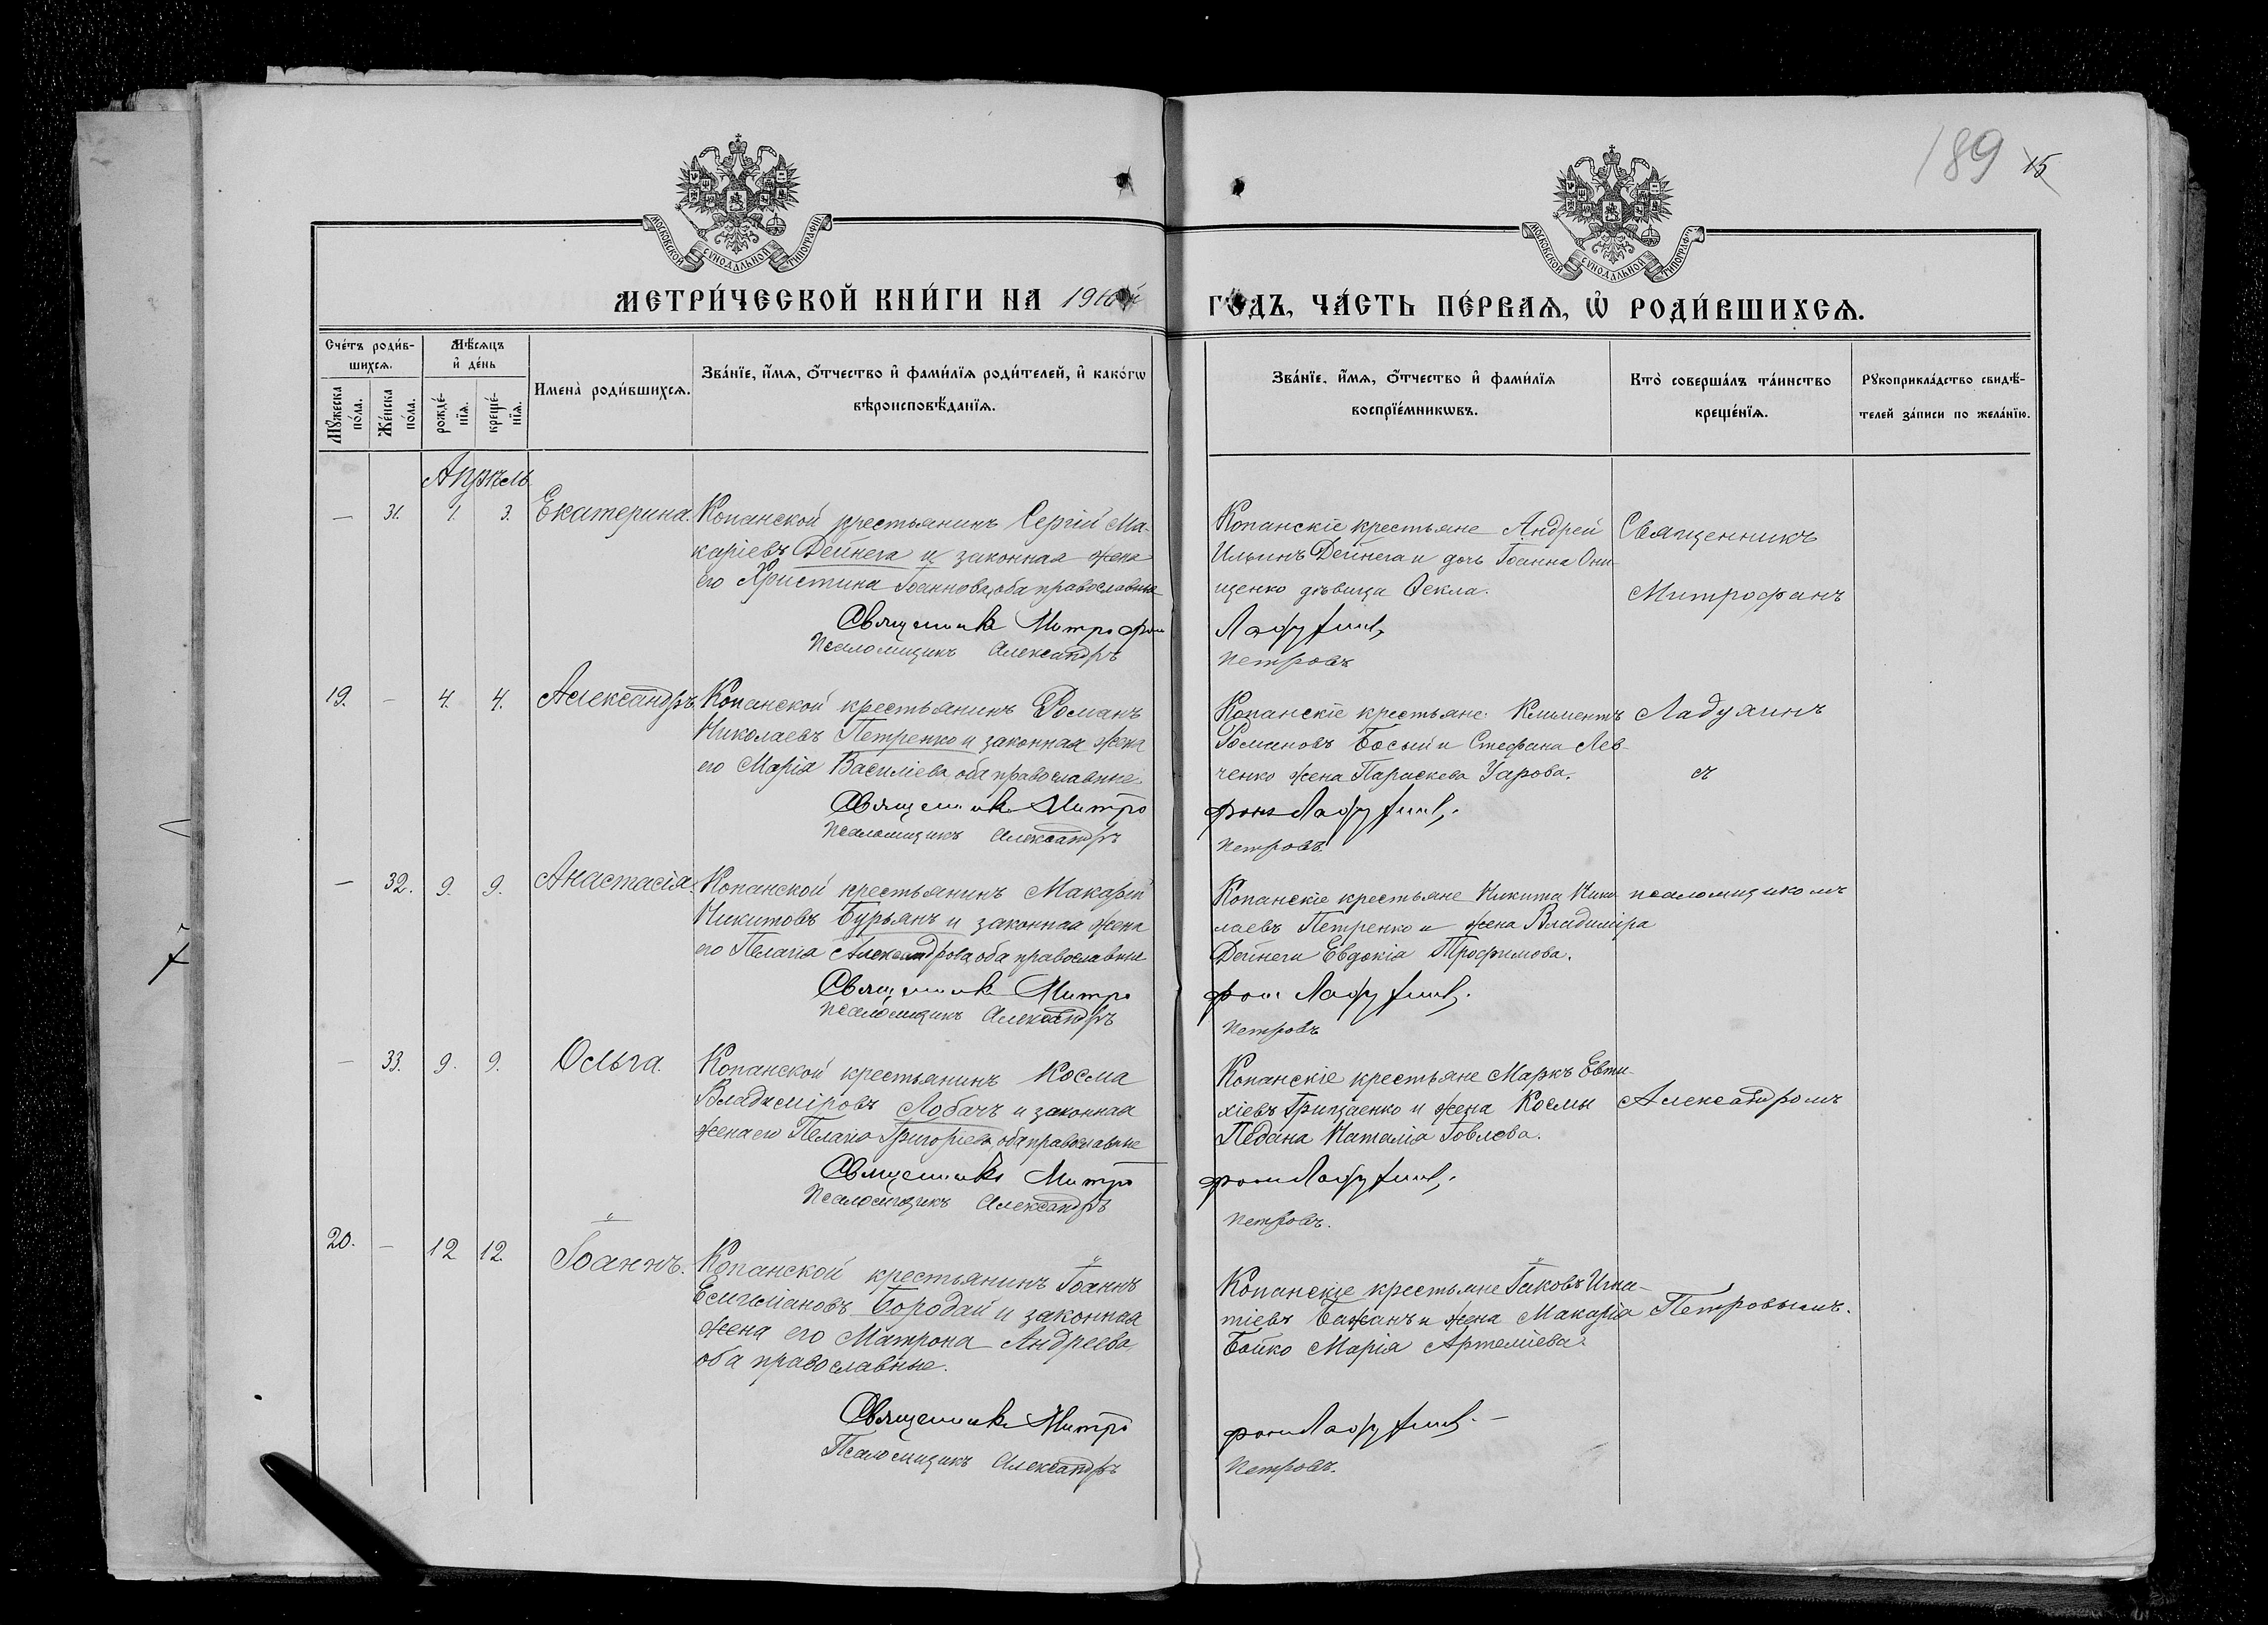 189 15
МОСКОВСКОЙ СѴНОДАЛЬНОЙ ТИПОГРАФІИ
МОСКОВСКОЙ СѴНОДАЛЬНОЙ ТИПОГРАФІИ
МЕТРИ́ЧЕСКОЙ КНИ́ГИ НА 1910й
ГО́ДЪ, ЧА́СТЬ ПЕ́РВАѦ, Ѡ РОДИ́ВШИХСѦ.
Сче́тъ роди́в-
шихсѧ.
Мꙋжеска по́ла.
Же́нска по́ла.
Мѣ́сяцъ
и҆ де́нь
рожде́-
нїѧ.
креще́-
нїѧ.
Имена̀ роди́вшихсѧ.
Зва́нїе, и҆́мѧ, о҆́тчество и҆ фами́лїѧ роди́телей, и҆ како́гѡ
вѣроисповѣ́данїѧ.
Зва́нїе, и҆́мѧ, о҆́тчество и҆ фами́лїѧ
воспрїе́мникѡвъ.
Кто̀ соверша́лъ та́инство
креще́нїѧ.
Рꙋкоприкла́дство свидѣ́-
телей за́писи по жела́нїю.
Апрѣль
— 31. 1. 3. Екатерина.
Копанской крестьянинъ Сергій Ма-
каріевъ Дейнега и законная жена
его Христина Іоаннова, оба православные
Священникъ Митрофан
Псаломщикъ Александръ
Копанскіе крестьяне Андрей
Ильинъ Дейнега и дочь Іоанна Они-
щенко дѣвица Ѳекла.
Ладухинъ
Петровъ
Священникъ
Митрофанъ
19. — 4. 4. Александръ.
Копанской крестьянинъ Романъ
Николаевъ Петренко и законная жена
его Марія Василіева оба православные
Священникъ Митро
Псаломщикъ Александръ
Копанскіе крестьяне: Климентъ
Романовъ Босый и Стефана Лев-
ченко жена Параскева Уарова.
фанъ Ладухинъ.
Петровъ.
Ладухинъ
съ
— 32. 9. 9. Анастасія.
Копанской крестьянинъ Макарій
Никитовъ Бурьянъ и законная жена
его Пелагія Александрова, оба православные
Священникъ Митро
Псаломщикъ Александръ
Копанскіе крестьяне Никита Нико-
лаевъ Петренко и жена Владиміра
Дейнеги Евдокія Трофимова.
фанъ Ладухинъ.
Петровъ
псаломщикомъ
— 33. 9. 9. Ольга.
Копанской крестьянинъ Косма
Владиміровъ Лобачъ и законная
жена его Пелагія Григоріева, оба православные
Священникъ Митро
Псаломщикъ Александръ
Копанскіе крестьяне Маркъ Евти-
хіевъ Грицаенко и жена Космы
Педана Наталія Іовлева.
фанъ Ладухинъ.
Петровъ.
Александромъ
20. — 12 12. Іоаннъ.
Копанской крестьянинъ Іоаннъ
Бородай и законная
жена его Матрона Андреева,
оба православные.
Священникъ Митро
Псаломщикъ Александръ
Копанскіе крестьяне Іаковъ Игна-
тіевъ Бажанъ и жена Макарія
Бойко Марія Артеміева.
фанъ Ладухинъ.
Петровъ.
Петровымъ.